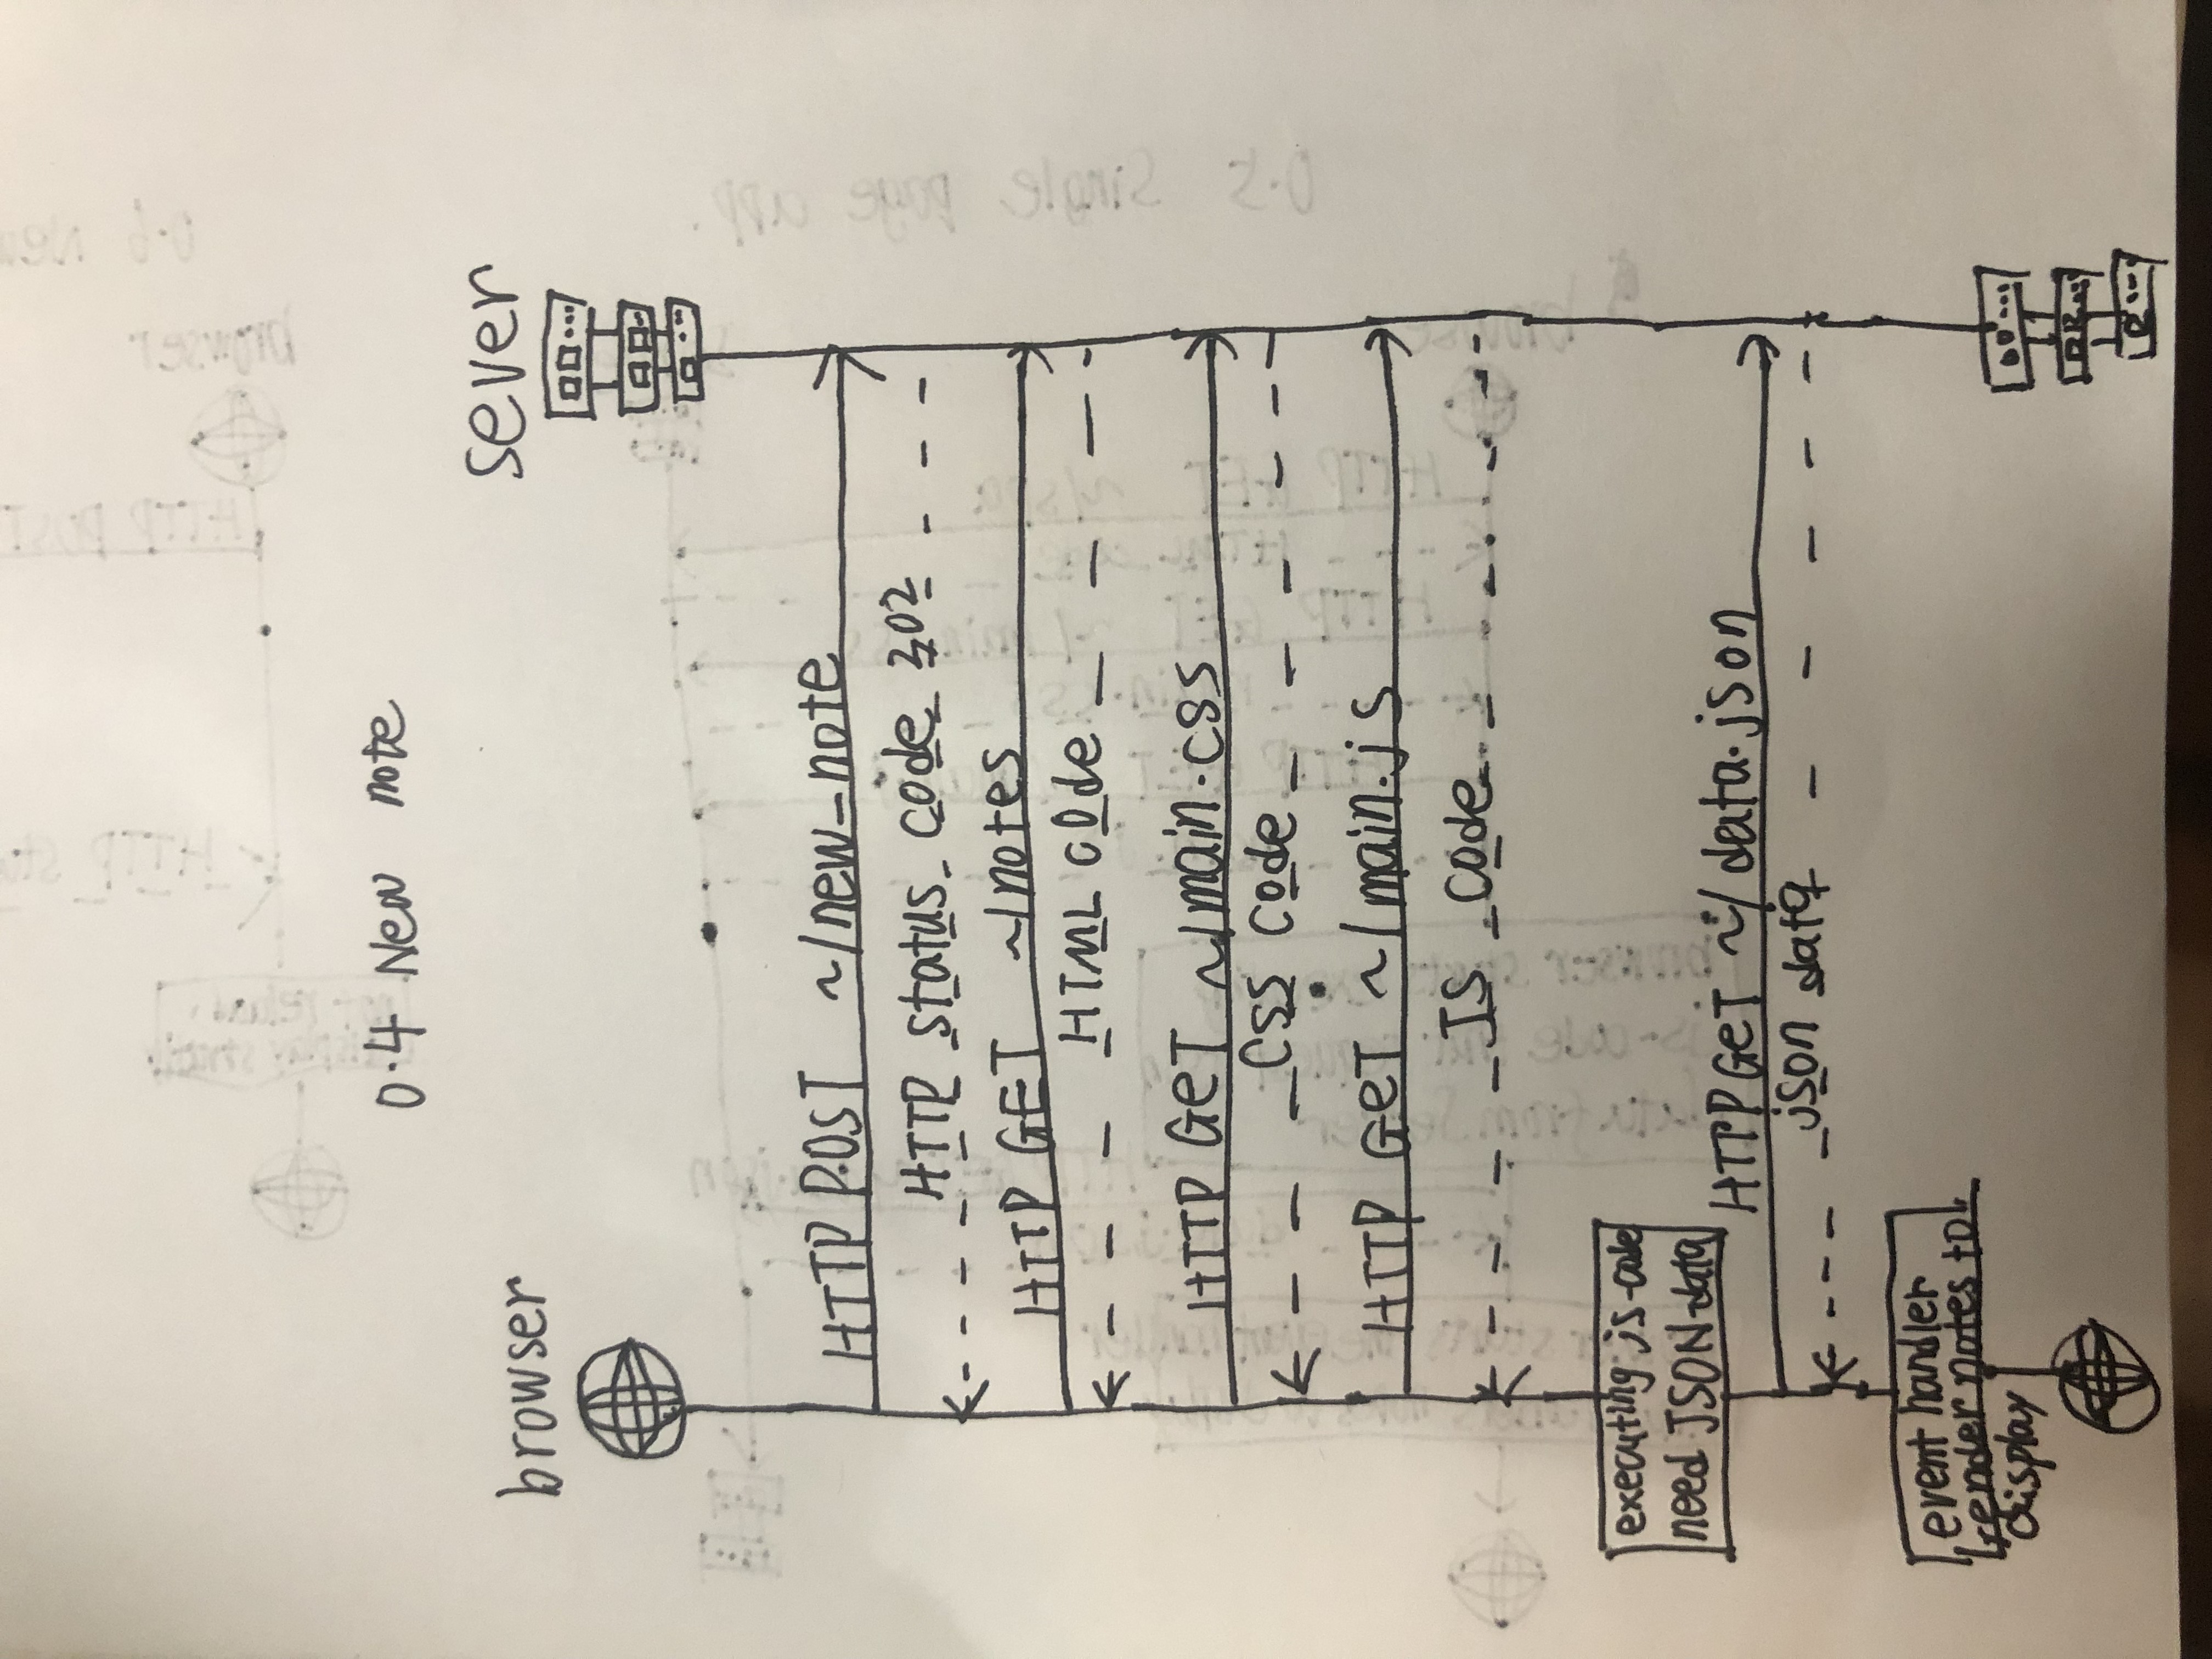 0.4 New note
browser
sever
HTTP POST ~/new_note
HTTP status code 302
HTTP GET ~/notes
HTML code
HTTP GET ~/main.css
CSS code
HTTP GET ~/main.js
JS code
executing js-code
need JSON-data
HTTP GET ~/data.json
json data
event handler
render notes to
display